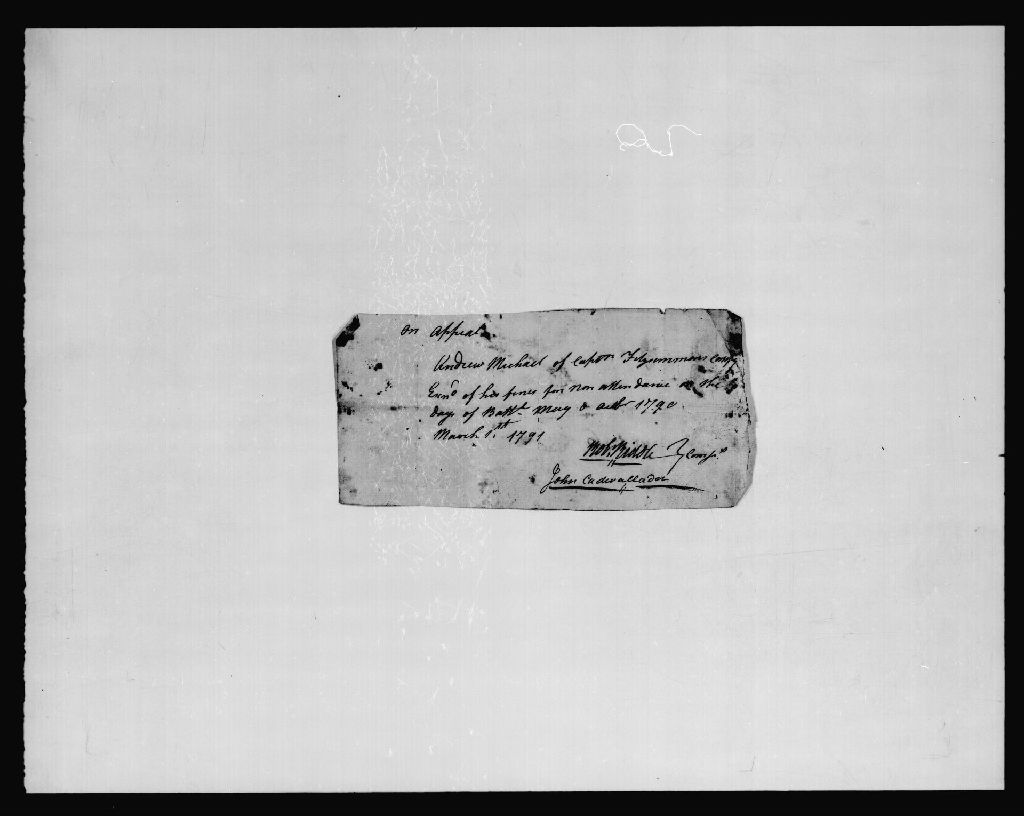 On Appeal
Andrew Michael of Captn Fitzsimmons Compy
Exnd of his fines for non attendance on the
days of Battn May & Octr 1790.
March 1st 1791
Robt Riddle
John Cadwallader